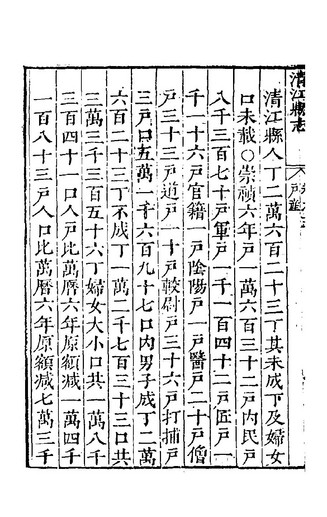 清江縣志
戶籍
清江縣人丁二萬六百二十三丁其未成丁及婦女
口未載〇崇禎六年戶一萬六百三十二戶內民戶
八千三百七十戶軍戶一千一百四十二戶匠戶一
千一十六戶官籍一戶陰陽戶一戶醫戶二十戶僧
戶三十三戶道戶一十戶較尉戶三十六戶打捕戶
三戶口五萬一千六百九十七口內男子成丁二萬
六百二十三丁不成丁一萬二千七百三十三口共
三萬三千三百五十六丁婦女大小口共一萬八千
三百四十一口人戶比萬曆六年原額減一萬四千
一百八十三戶人口比萬曆六年原額減七萬三千